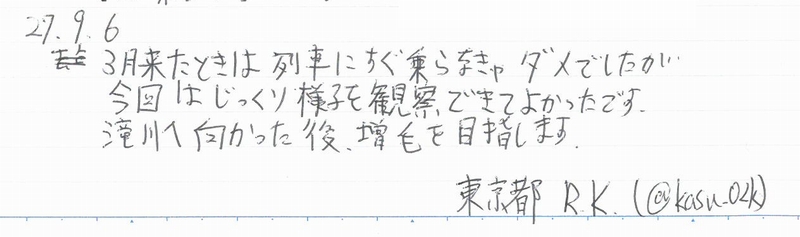 27.9.6
3月来たときは列車にすぐ乗らなきゃダメでしたが
今回はじっくり様子を観察できてよかったです.
滝川へ向かった後、増毛を目指します.
東京都 R.K. (@kasu_02k)